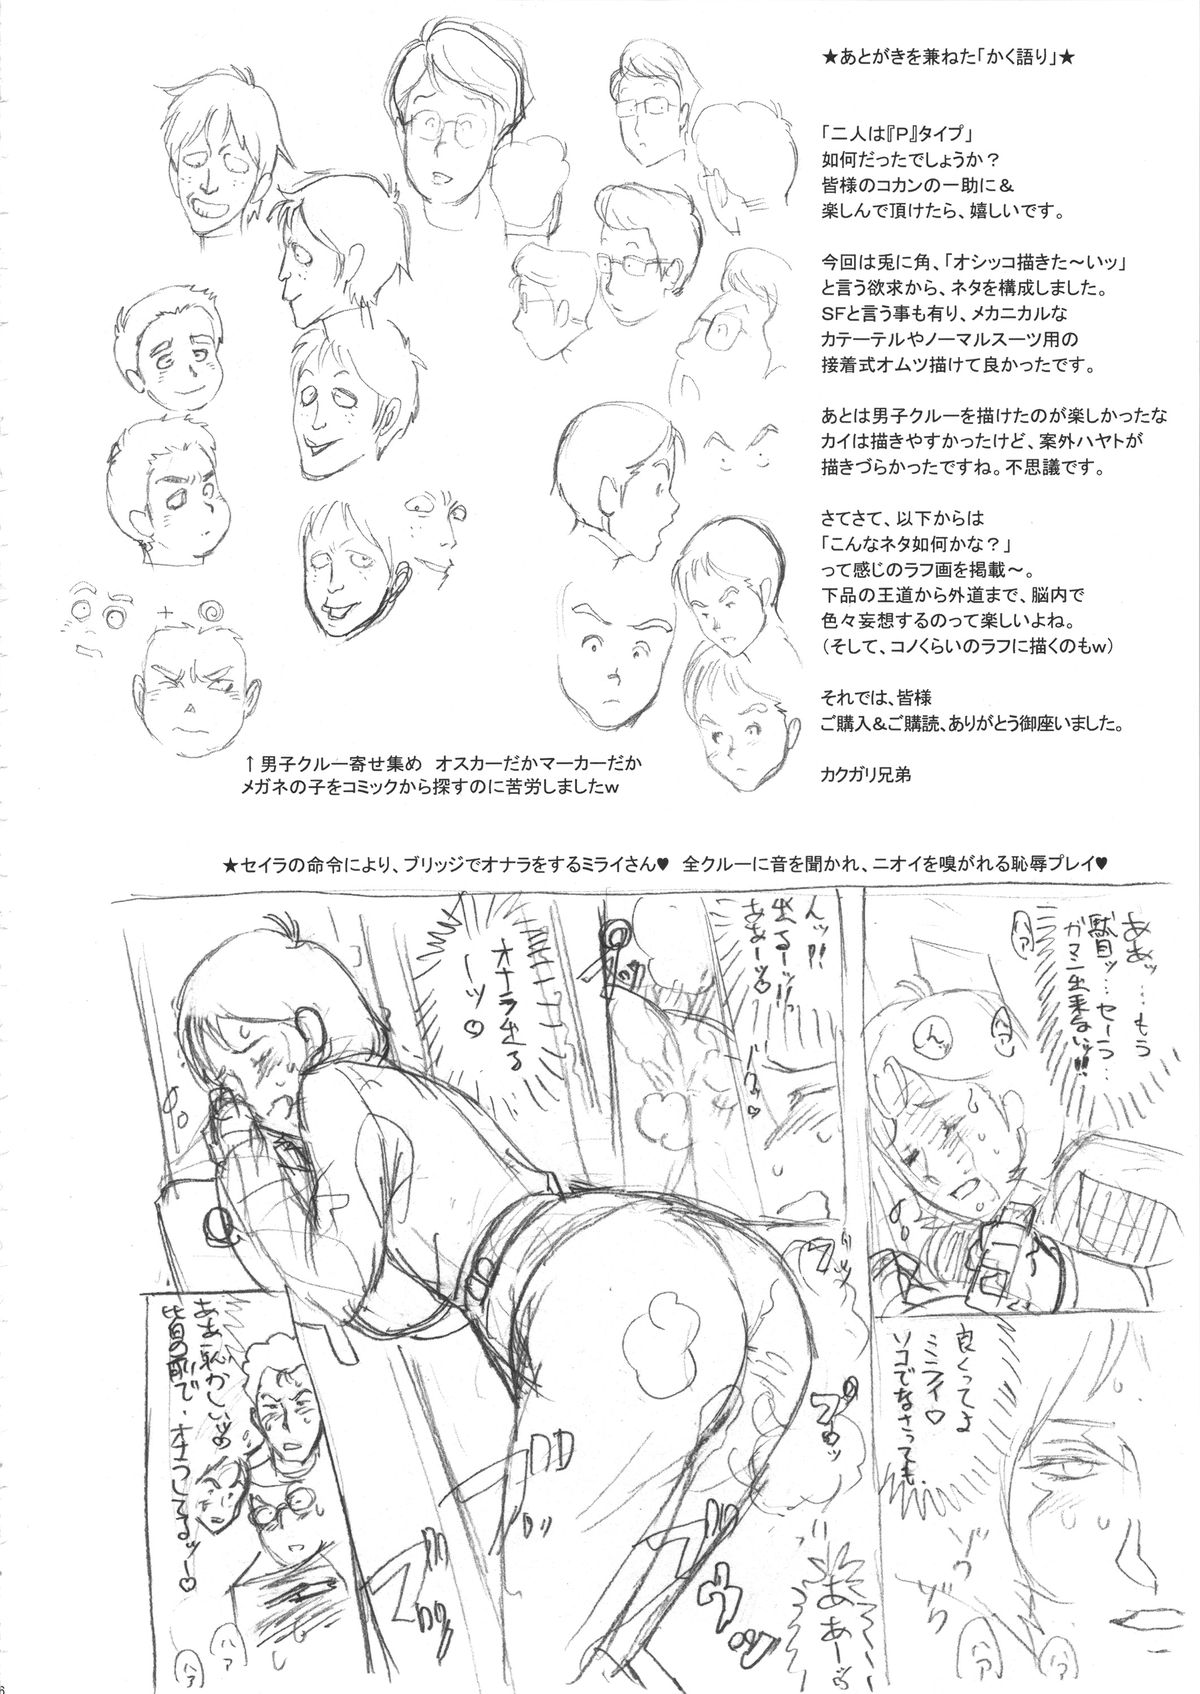 ★あとがきを兼ねた「かく語り」★
「二人は『P』タイプ」
如何だったでしょうか？
皆様のコカンの一助に＆
楽しんで頂けたら、嬉しいです。
今回は兎に角、「オシッコ描きた～いッ」
と言う欲求から、ネタを構成しました。
SFと言う事も有り、メカニカルな
カテーテルやノーマルスーツ用の
接着式オムツ描けて良かったです。
あとは男子クルーを描けたのが楽しかったな
カイは描きやすかったけど、案外ハヤトが
描きづらかったですね。不思議です。
さてさて、以下からは
「こんなネタ如何かな？」
って感じのラフ画を掲載～。
下品の王道から外道まで、脳内で
色々妄想するのって楽しいよね。
（そして、コノくらいのラフに描くのもw）
それでは、皆様
ご購入＆ご購読、ありがとう御座いました。
カクガリ兄弟
↑男子クルー寄せ集め　オスカーだかマーカーだか
メガネの子をコミックから探すのに苦労しましたw
★セイラの命令により、ブリッジでオナラをするミライさん♥　全クルーに音を聞かれ、ニオイを嗅がれる恥辱プレイ♥
ああッ…もう
駄目ッ…セーラ…
ガマン出来ないッ!!!
ハァ
ん
ハァ
んッ!!
出るーッ!!
ああーッ♡
オナラ出る
ーッ♡
良くってよ
ミライ♡
ソコでなさっても
ゾク
ゾク
ああーッ
ああ恥かしい
皆の前で・オナラしてるッー♡
ハァ
ハァ
ハァ
ハァ
6